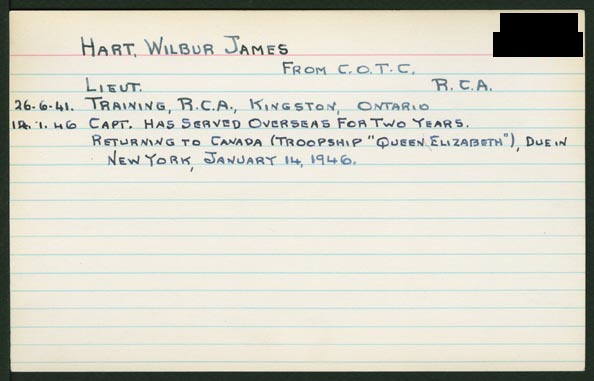 HART, WILBUR JAMES
FROM C.O.T.C.
LIEUT. R.C.A.
26.6.41. TRAINING, R.C.A., KINGSTON, ONTARIO
12.1.46 CAPT. HAS SERVED OVERSEAS FOR TWO YEARS.
RETURNING TO CANADA (TROOPSHIP "QUEEN ELIZABETH"), DUE IN
NEW YORK, JANUARY 14, 1946.